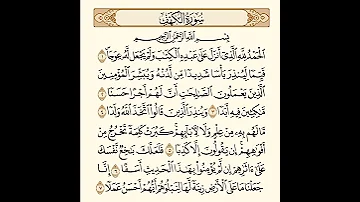 سُورَةُ الكَهْفِ
بِسْمِ اللَّهِ الرَّحْمَٰنِ الرَّحِيمِ
الْحَمْدُ لِلَّهِ الَّذِي أَنزَلَ عَلَىٰ عَبْدِهِ الْكِتَٰبَ وَلَمْ يَجْعَل لَّهُ عِوَجَا ۜ ١
قَيِّمًا لِّيُنذِرَ بَأْسًا شَدِيدًا مِّن لَّدُنْهُ وَيُبَشِّرَ الْمُؤْمِنِينَ
الَّذِينَ يَعْمَلُونَ الصَّٰلِحَٰتِ أَنَّ لَهُمْ أَجْرًا حَسَنًا ٢
مَّٰكِثِينَ فِيهِ أَبَدًا ٣ وَيُنذِرَ الَّذِينَ قَالُوا اتَّخَذَ اللَّهُ وَلَدًا ٤
مَّا لَهُم بِهِ مِنْ عِلْمٍ وَلَا لِءَابَآئِهِمْ كَبُرَتْ كَلِمَةً تَخْرُجُ مِنْ
أَفْوَٰهِهِمْ إِن يَقُولُونَ إِلَّا كَذِبًا ٥ فَلَعَلَّكَ بَٰخِعٌ نَّفْسَكَ
عَلَىٰ ءَاثَٰرِهِمْ إِن لَّمْ يُؤْمِنُوا بِهَٰذَا الْحَدِيثِ أَسَفًا ٦ إِنَّا
جَعَلْنَا مَا عَلَى الْأَرْضِ زِينَةً لَّهَا لِنَبْلُوَهُمْ أَيُّهُمْ أَحْسَنُ عَمَلًا ٧